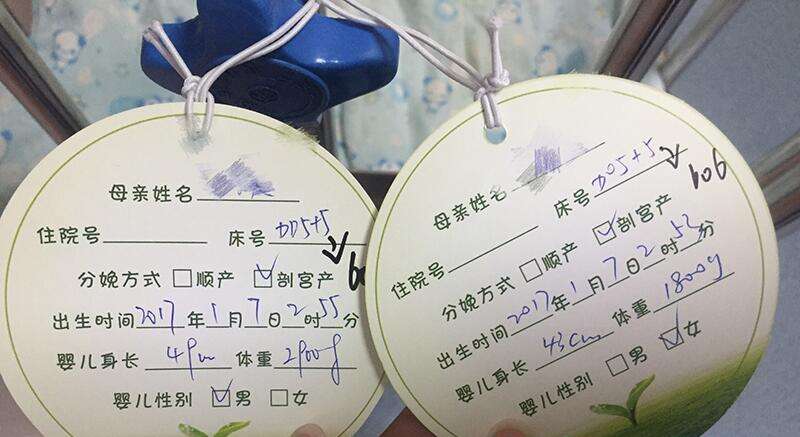 母亲姓名
住院号 床号 DD5+5
606
分娩方式 □顺产 ☑剖宫产
出生时间 2017年1月7日2时55分
婴儿身长 49cm 体重 2900g
婴儿性别 ☑男 □女
母亲姓名
住院号 床号 DD5+5
606
分娩方式 □顺产 ☑剖宫产
出生时间 2017年1月7日2时52分
婴儿身长 43cm 体重 1800g
婴儿性别 □男 ☑女